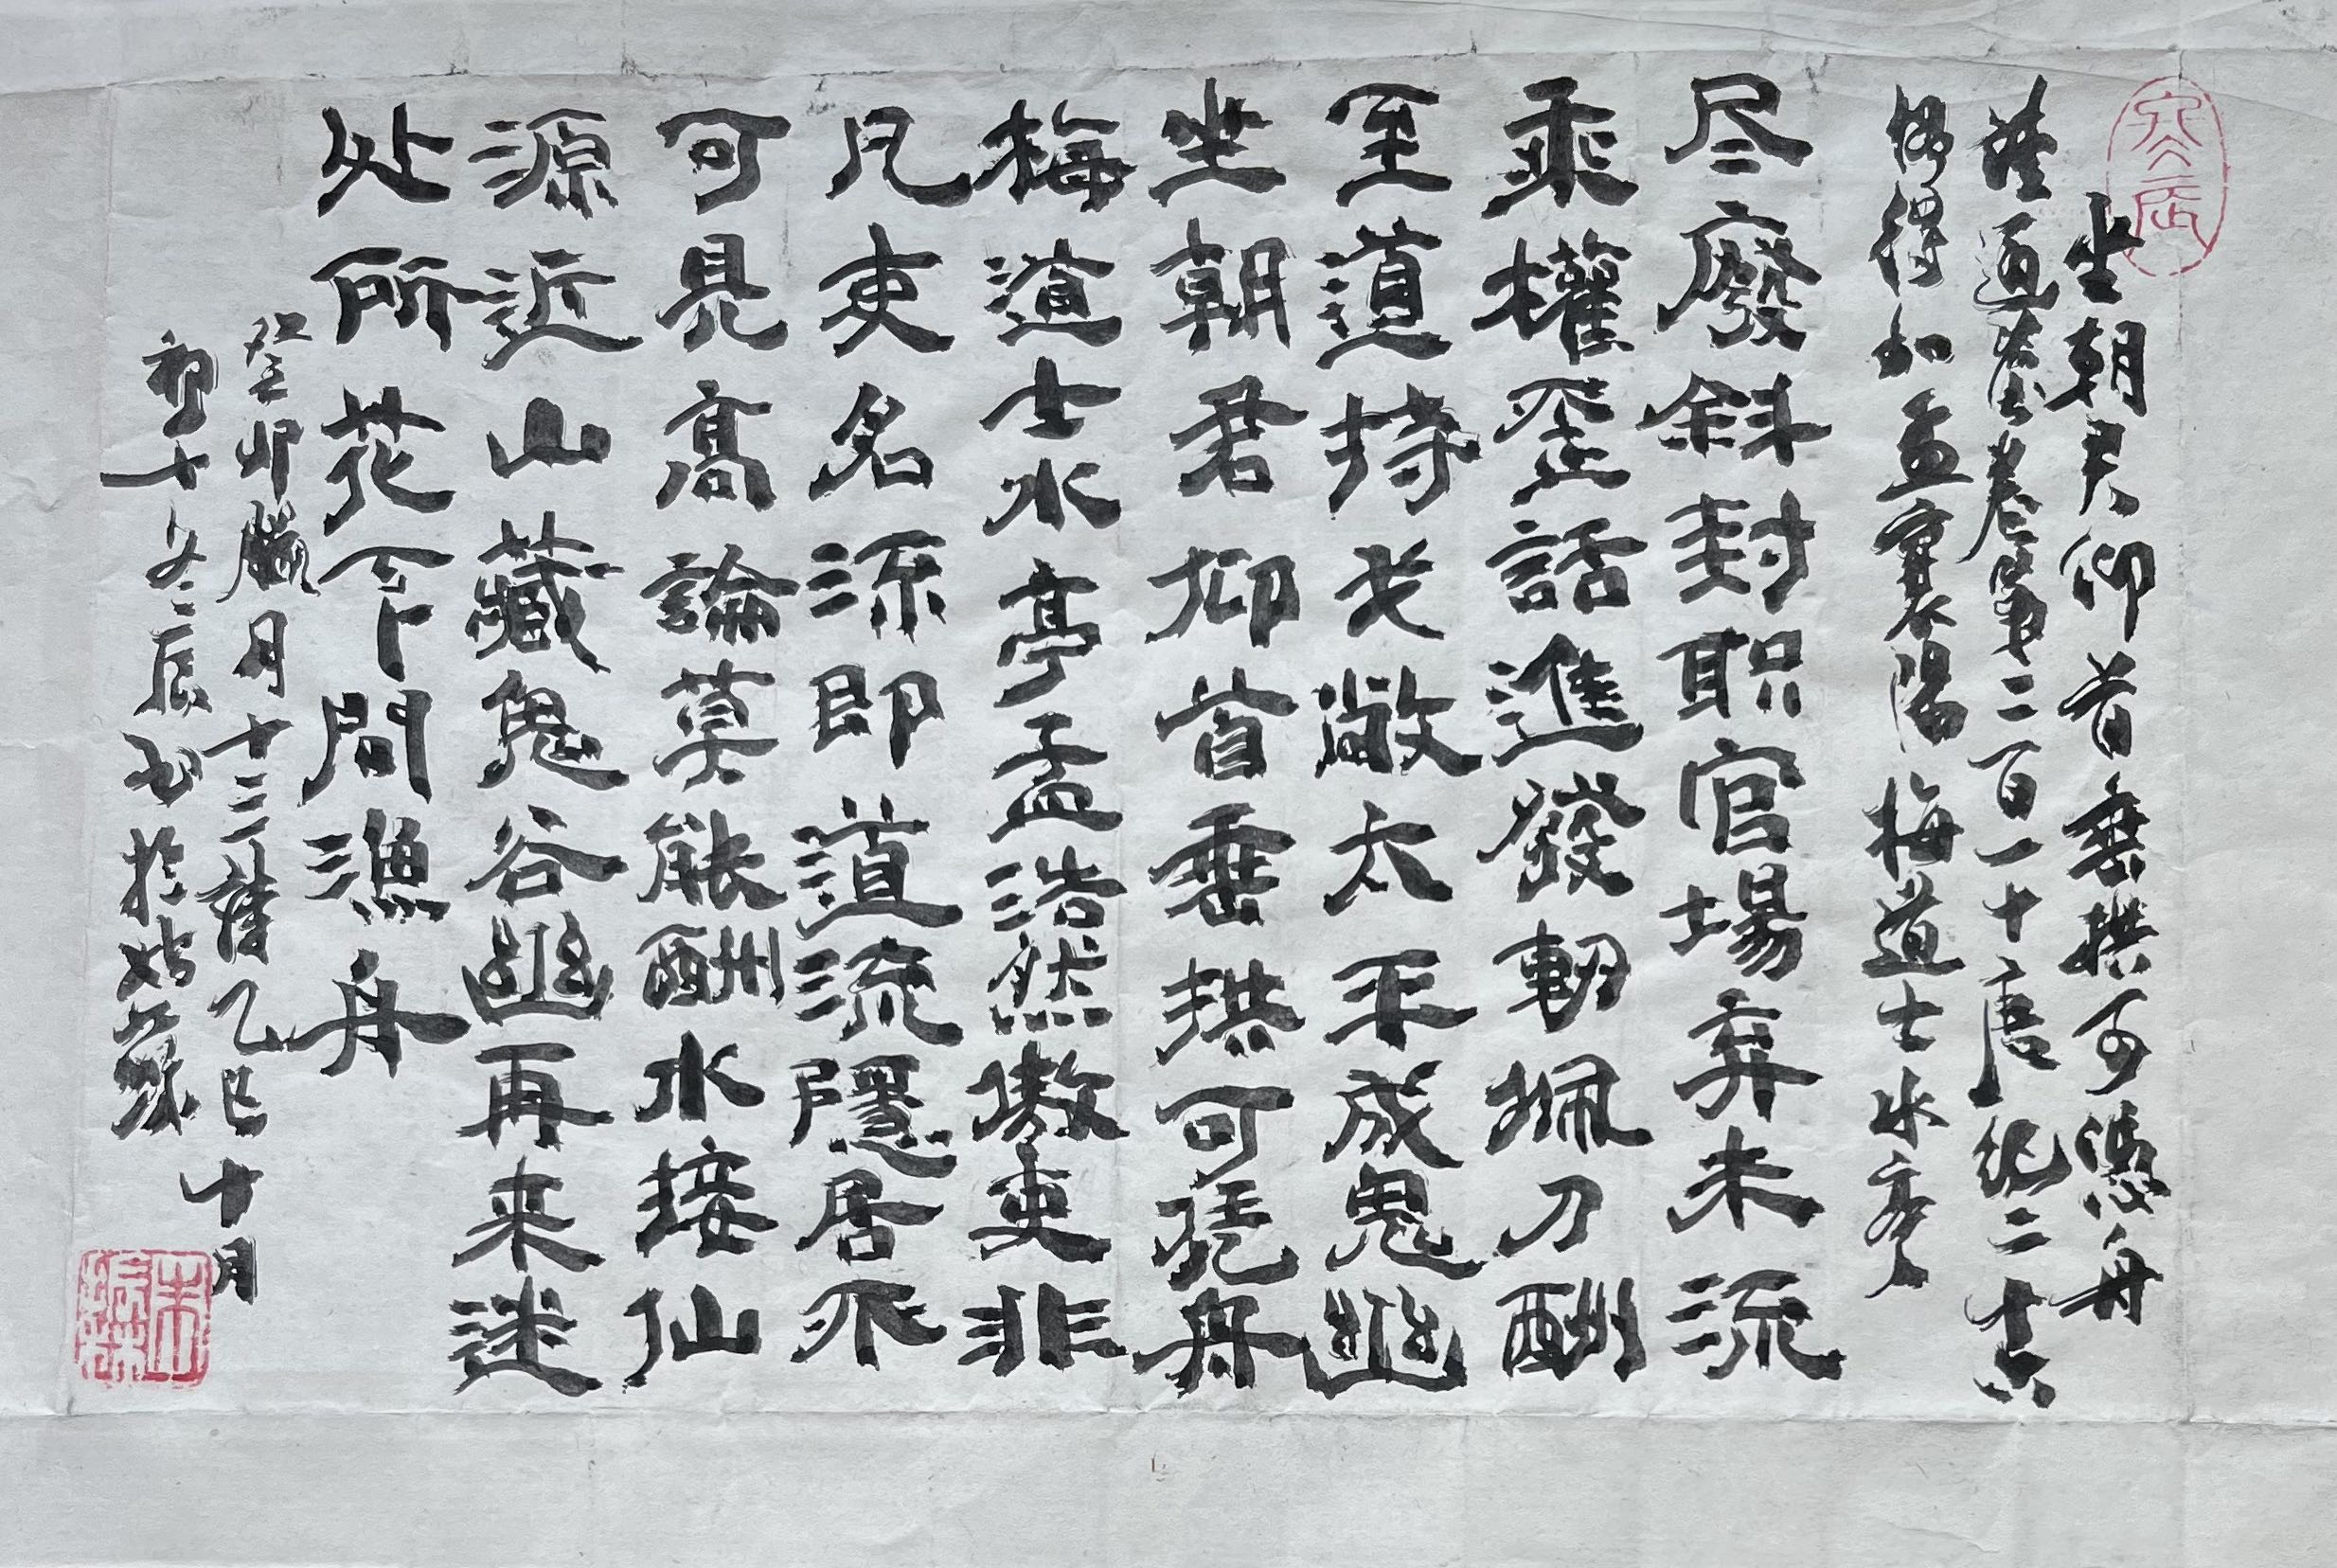 坐朝君仰首垂拱可憑舟
讀通鑑卷第二百一十唐紀二十六
偶得和孟襄陽梅道士水亭
尽廢斜封职官場弃未流
乘權歪話進發軔挪刀酬
至道持戈敞太平成鬼幽
坐朝君仰首垂拱可凭舟
梅道士水亭孟浩然傲吏非
凡吏名流即道流隱居不
可見高論莫能酬水接仙
源近山藏鬼谷幽再来迷
处所花下問漁舟
癸卯臘月十三讀乙巳十月
初十父辰書於姑蘇